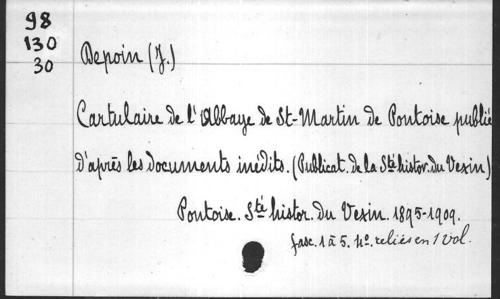 98
130
30
Depoin (J.)
Cartulaire de l'Abbaye de St-Martin de Pontoise publié
d'après les documents inédits. (Publicat. de la Sté histor. du Vexin)
Pontoise. Sté histor. du Vexin. 1895-1909.
fasc. 1 à 5. 4º. reliés en 1 vol.